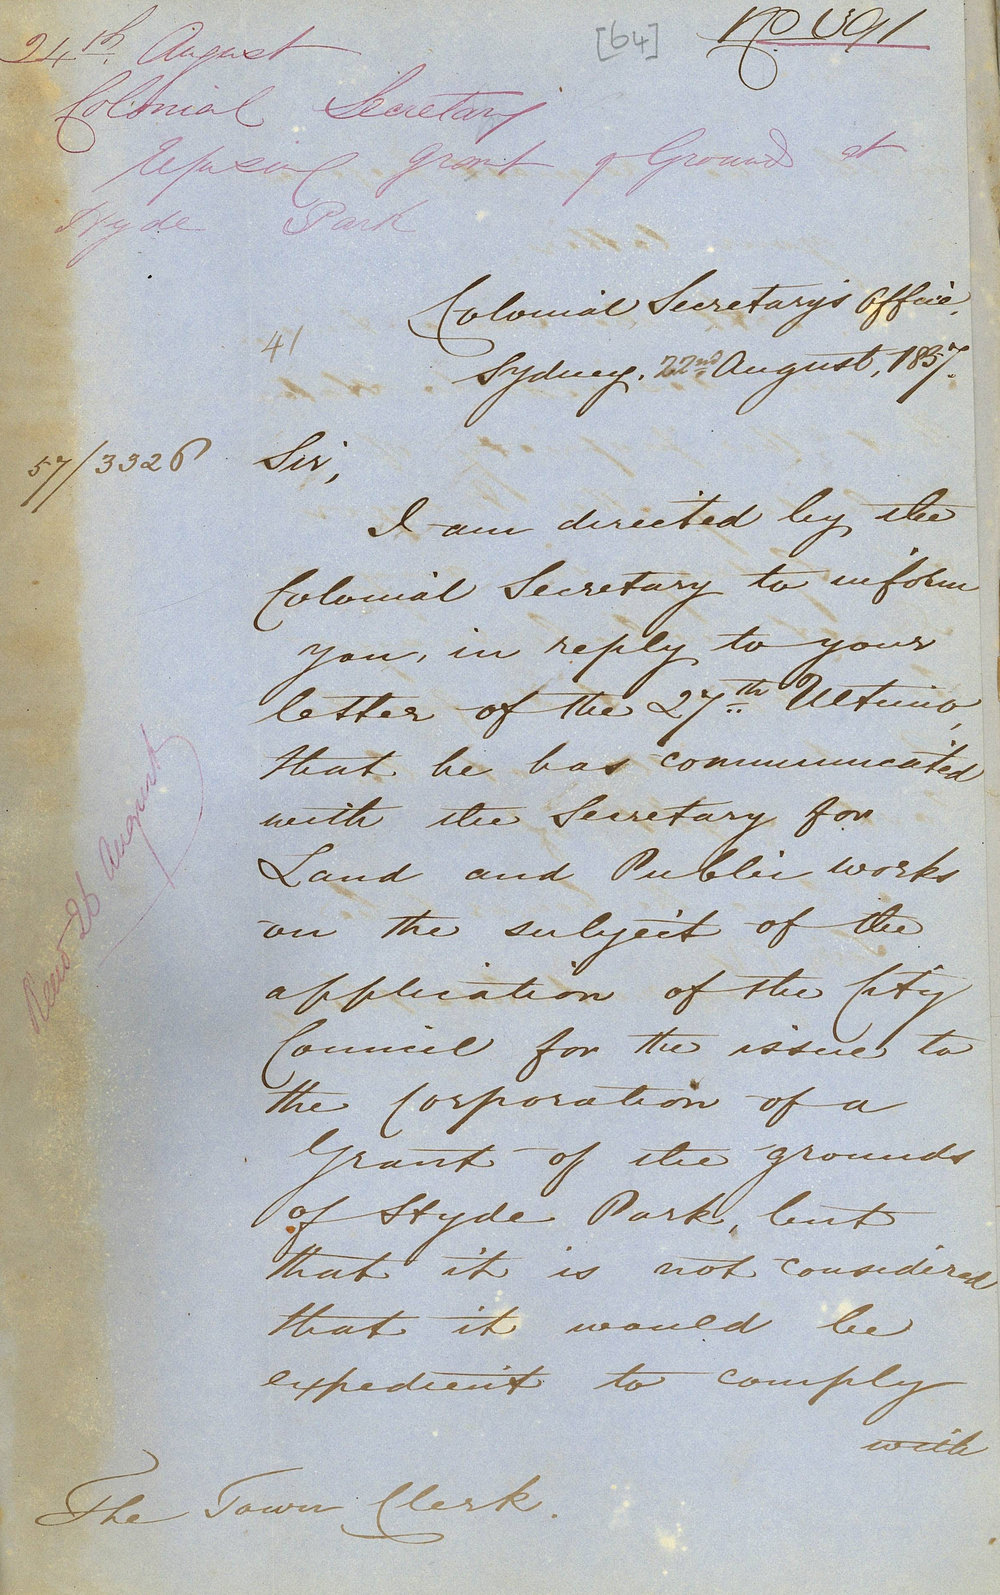 [64]
No. 691
24th. August
Colonial Secretary
refusing grant of Ground at
Hyde Park
Colonial Secretary's Office,
Sydney. 22nd August, 1857.
41
57/3326
Sir,
I am directed by the
Colonial Secretary to inform
you, in reply to your
letter of the 27th Ultimo,
that he has communicated
with the Secretary for
Land and Public works
on the subject of the
application of the City
Council for the issue to
the Corporation of a
Grant of the grounds
of Hyde Park, but
that it is not considered
that it would be
expedient to comply
with
Read 26 August
The Town Clerk.